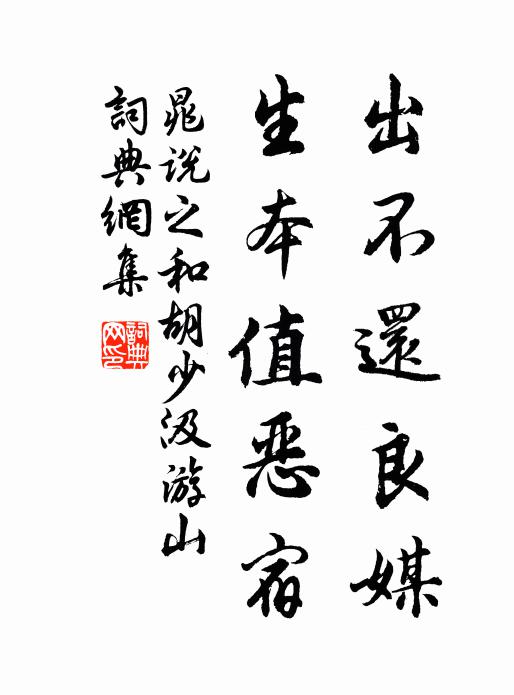 出不還良媒
生本值惡宿
晁說之和胡少汲游山
詞典網集
詞典網印